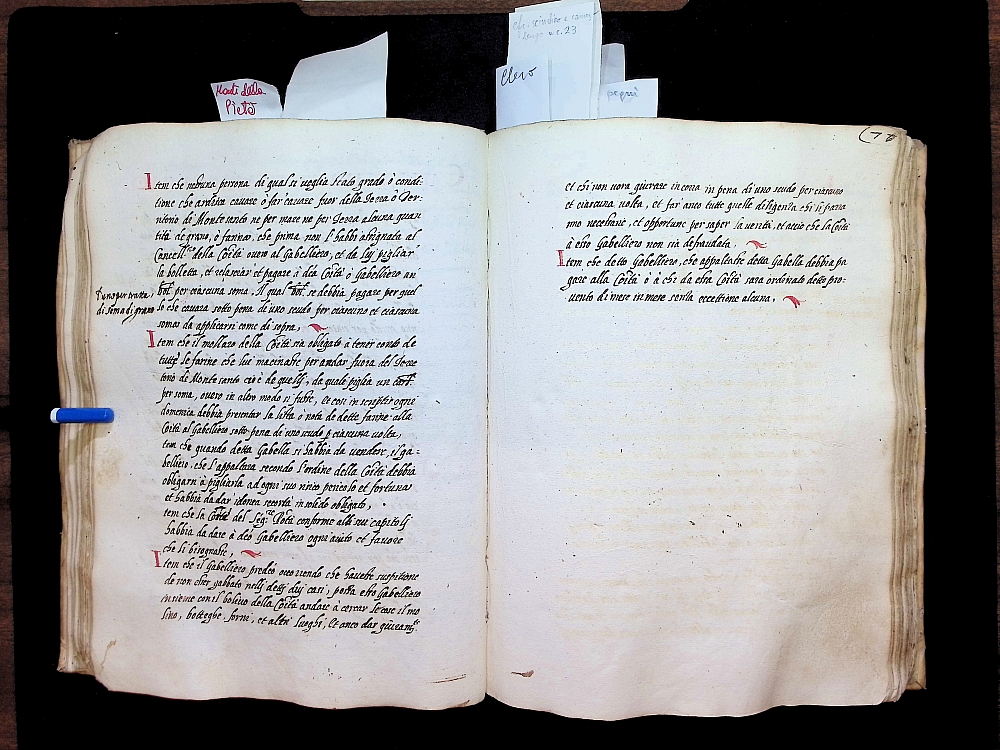 Monti della
Pietà
cfr. sindico e camer
lengo a c. 23
Clero
pegni
Item che nesuna persona di qual si veglia stato grado ò condi:
tione che ardisca cavare ò fer cavare fuor della Terra ò Ter:
ritorio di Monte santo ne per mare ne per Terra alcuna quan
tità de grano, ò farina, che prima non l'habbi assignata al
Cancell.re della Coītà overo al Gabelliero, et da lui pigliar
la bolletta, et relasciar et pagare à dca Coītà ò Gabelliero un
bol: per ciascuna soma, Il qual bol: se debbia pagare per quel
lo che cavara sotto pena di uno scudo per ciascuno et ciascuna
soma da applicarsi come di sopra,
di soma di grano
Item che il mollaro della Coītà sia obligato à tener conto de
tutte le farine che lui macinasse per andar fuora del Terre
torio di Monte santo cioè de quelli, da quale piglia un
per soma, overo in altro modo si fusse, Et cosi in scriptis ogne
domenica debbia presentar la lista ò nota de dette farine alla
Coītà al Gabelliero sotto pena di uno scudo p ciascuna volta,
tem che quando detta Gabella si habbia da vendere, il ga:
belliero, che l'appaltara secondo l'ordine della Coītà debbia
obligarsi à pigliarla ad ogni suo risico pericolo et fortuna
et habbia da dar idonea securtà in solido obligato,
tem che la Coītà del Sig.r Potà conforme alli sui capitoli
habbia da dare à dco Gabelliero ogni aiuto et favore
che li bisognasse,
Item che il Gabelliero predco occorrendo che havesse suspitione
de non esser gabbato nelli detti dui casi, possa esso Gabelliero
insieme con il balivo della Coītà andare à cercar le case il mo
lino, botteghe, forni, et altri luoghi, Et anco dar giuram.to
et chi non vora giurare incorra in pena di uno scudo per ciascuno
et ciascuna volta, et far anco tutte quelle diligenza chi si fara
mo necessarie, et opportune per saper la verità, et acciò che la Coītà
à esso Gabelliero non sia defraudata.
Item che detto Gabelliero, che appaltasse detta Gabella debbia pa
gare alla Coītà ò à chi da essa Coītà sarà ordinato detto pro:
vento di mese in mese senza eccettione alcuna,